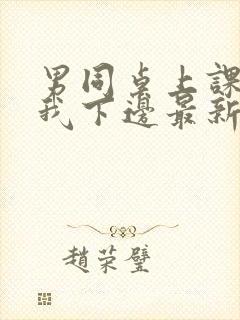 男同桌上課
我下邊最新
趙荣璧